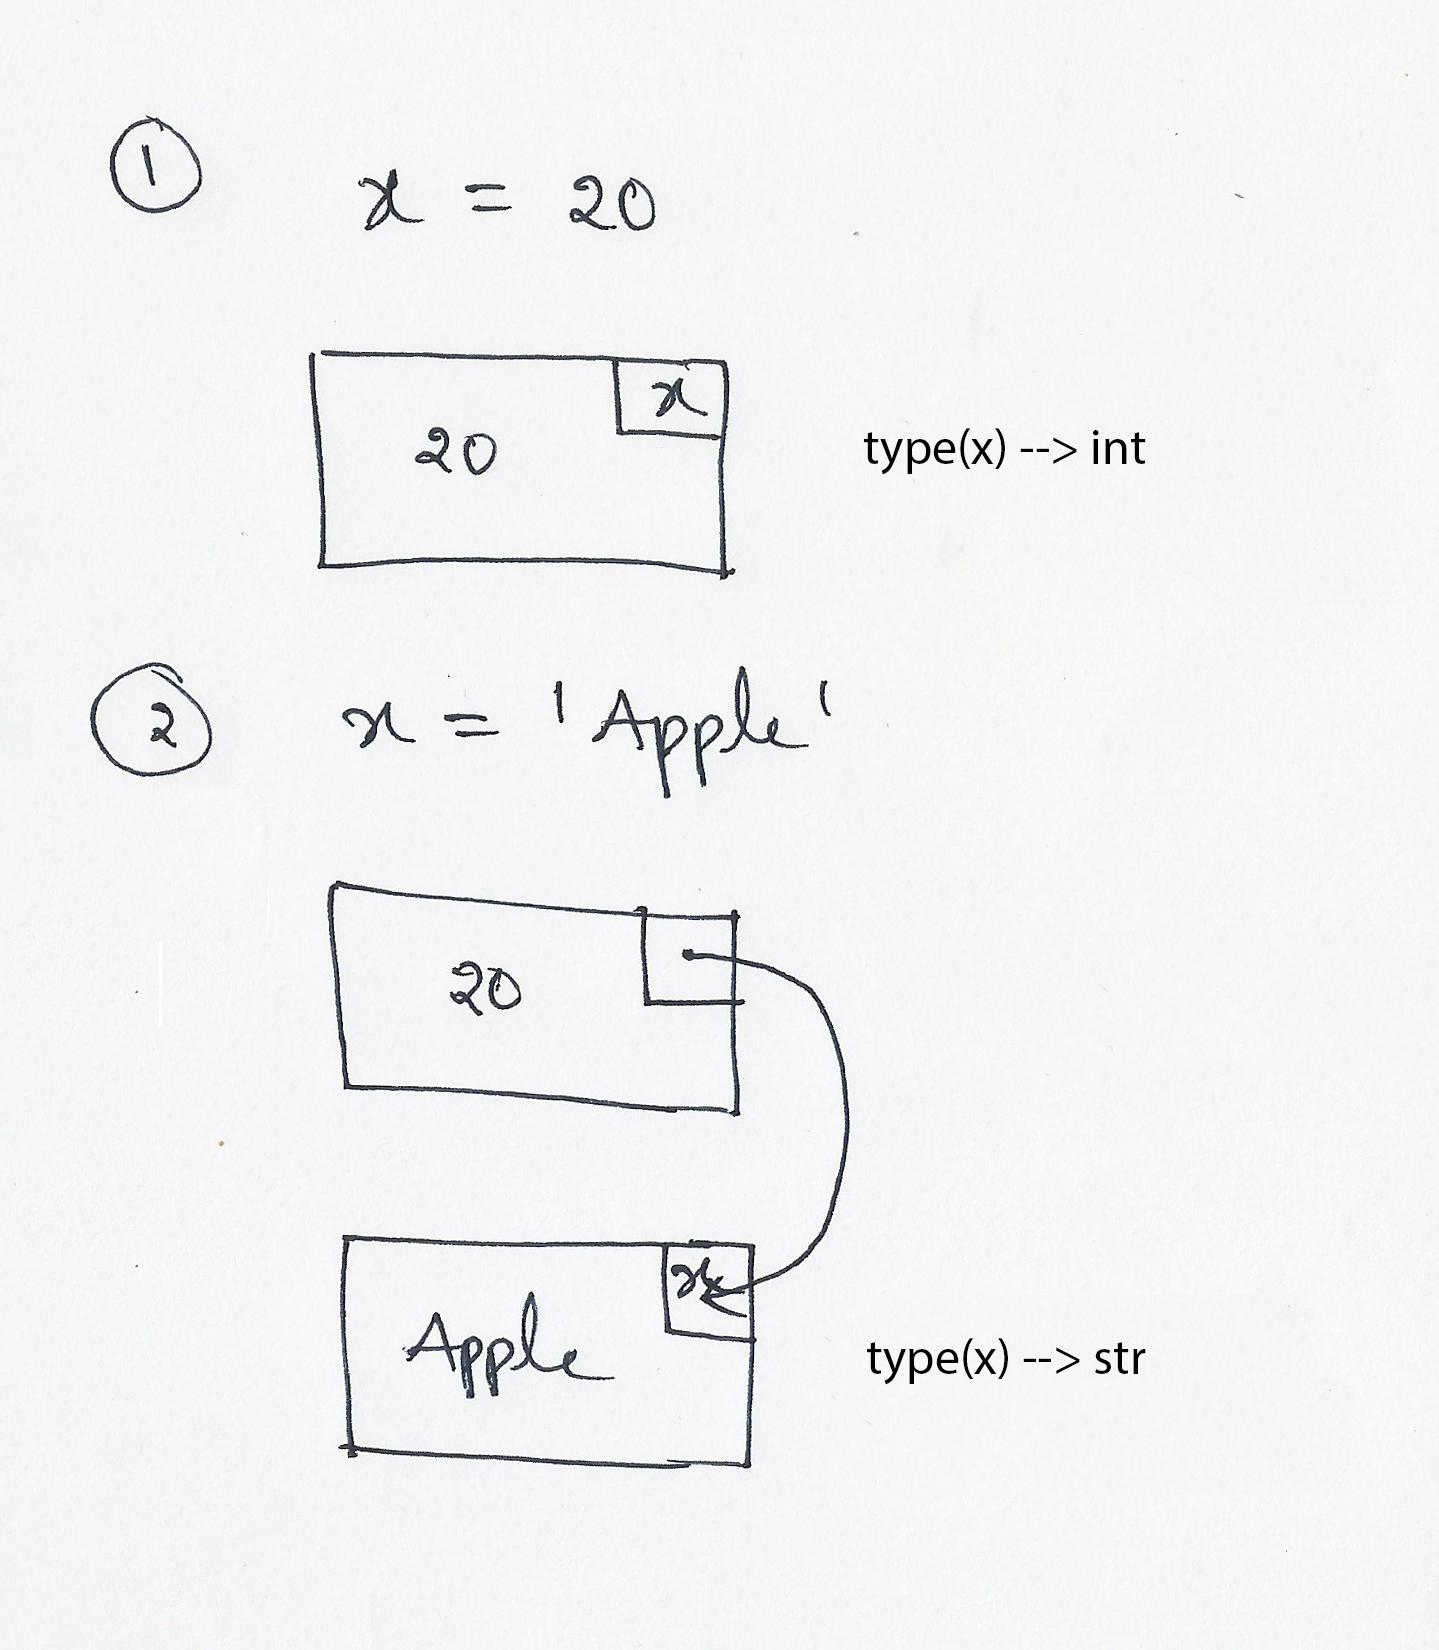 1 x = 20
x
20 type(x) --> int
2 x = 'Apple'
20
x
Apple type(x) --> str